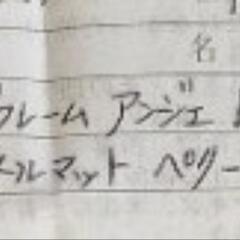 名
フレーム アンジェ
ールマット ペグー